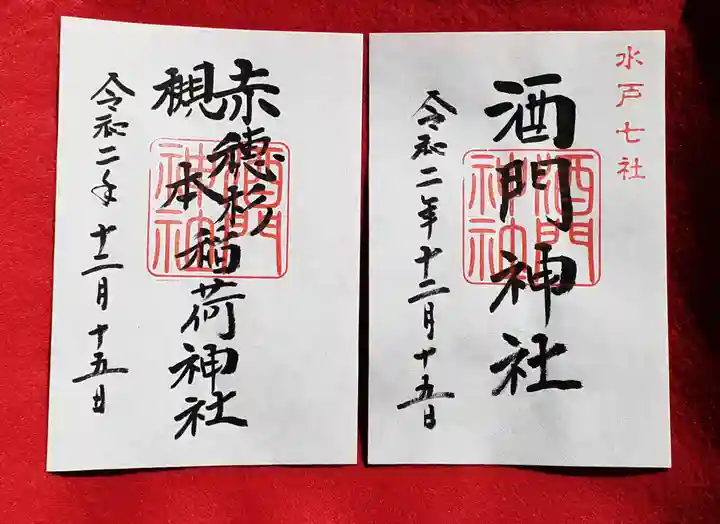 水戸七社
酒門神社
酒門神社
令和二年十二月十五日
赤穂杉
槻本
稲荷神社
酒門神社
令和二年十二月十五日